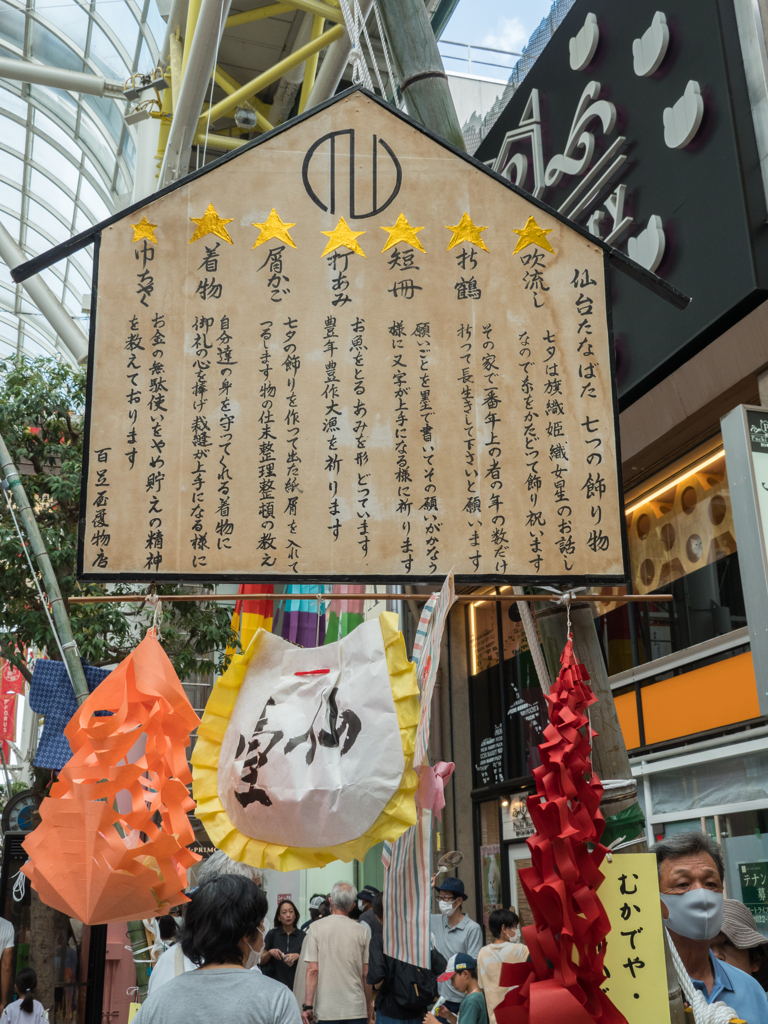 仙台たなばた 七つの飾り物
吹流し
七夕は旗織姫、織女星のお話し
なので糸をかたどって飾り祝います
折鶴
その家で一番年上の者の年の数だけ
折って長生きして下さいと願います
短冊
願いごとを墨で書いてその願いがかなう
様に又字が上手になる様に祈ります
打あみ
お魚をとるあみを形どっています
豊年豊作大漁を祈ります
屑かご
七夕の飾りを作って出た紙屑を入れて
つるします物の仕末整理整頓の教え
着物
自分達の身を守ってくれる着物に
御礼の心を捧げ裁縫が上手になる様に
巾ちゃく
お金の無駄使いをやめ貯えの精神
を教えております
百足屋履物店
仙
臺
むかでや・
FORUS
テナン
募